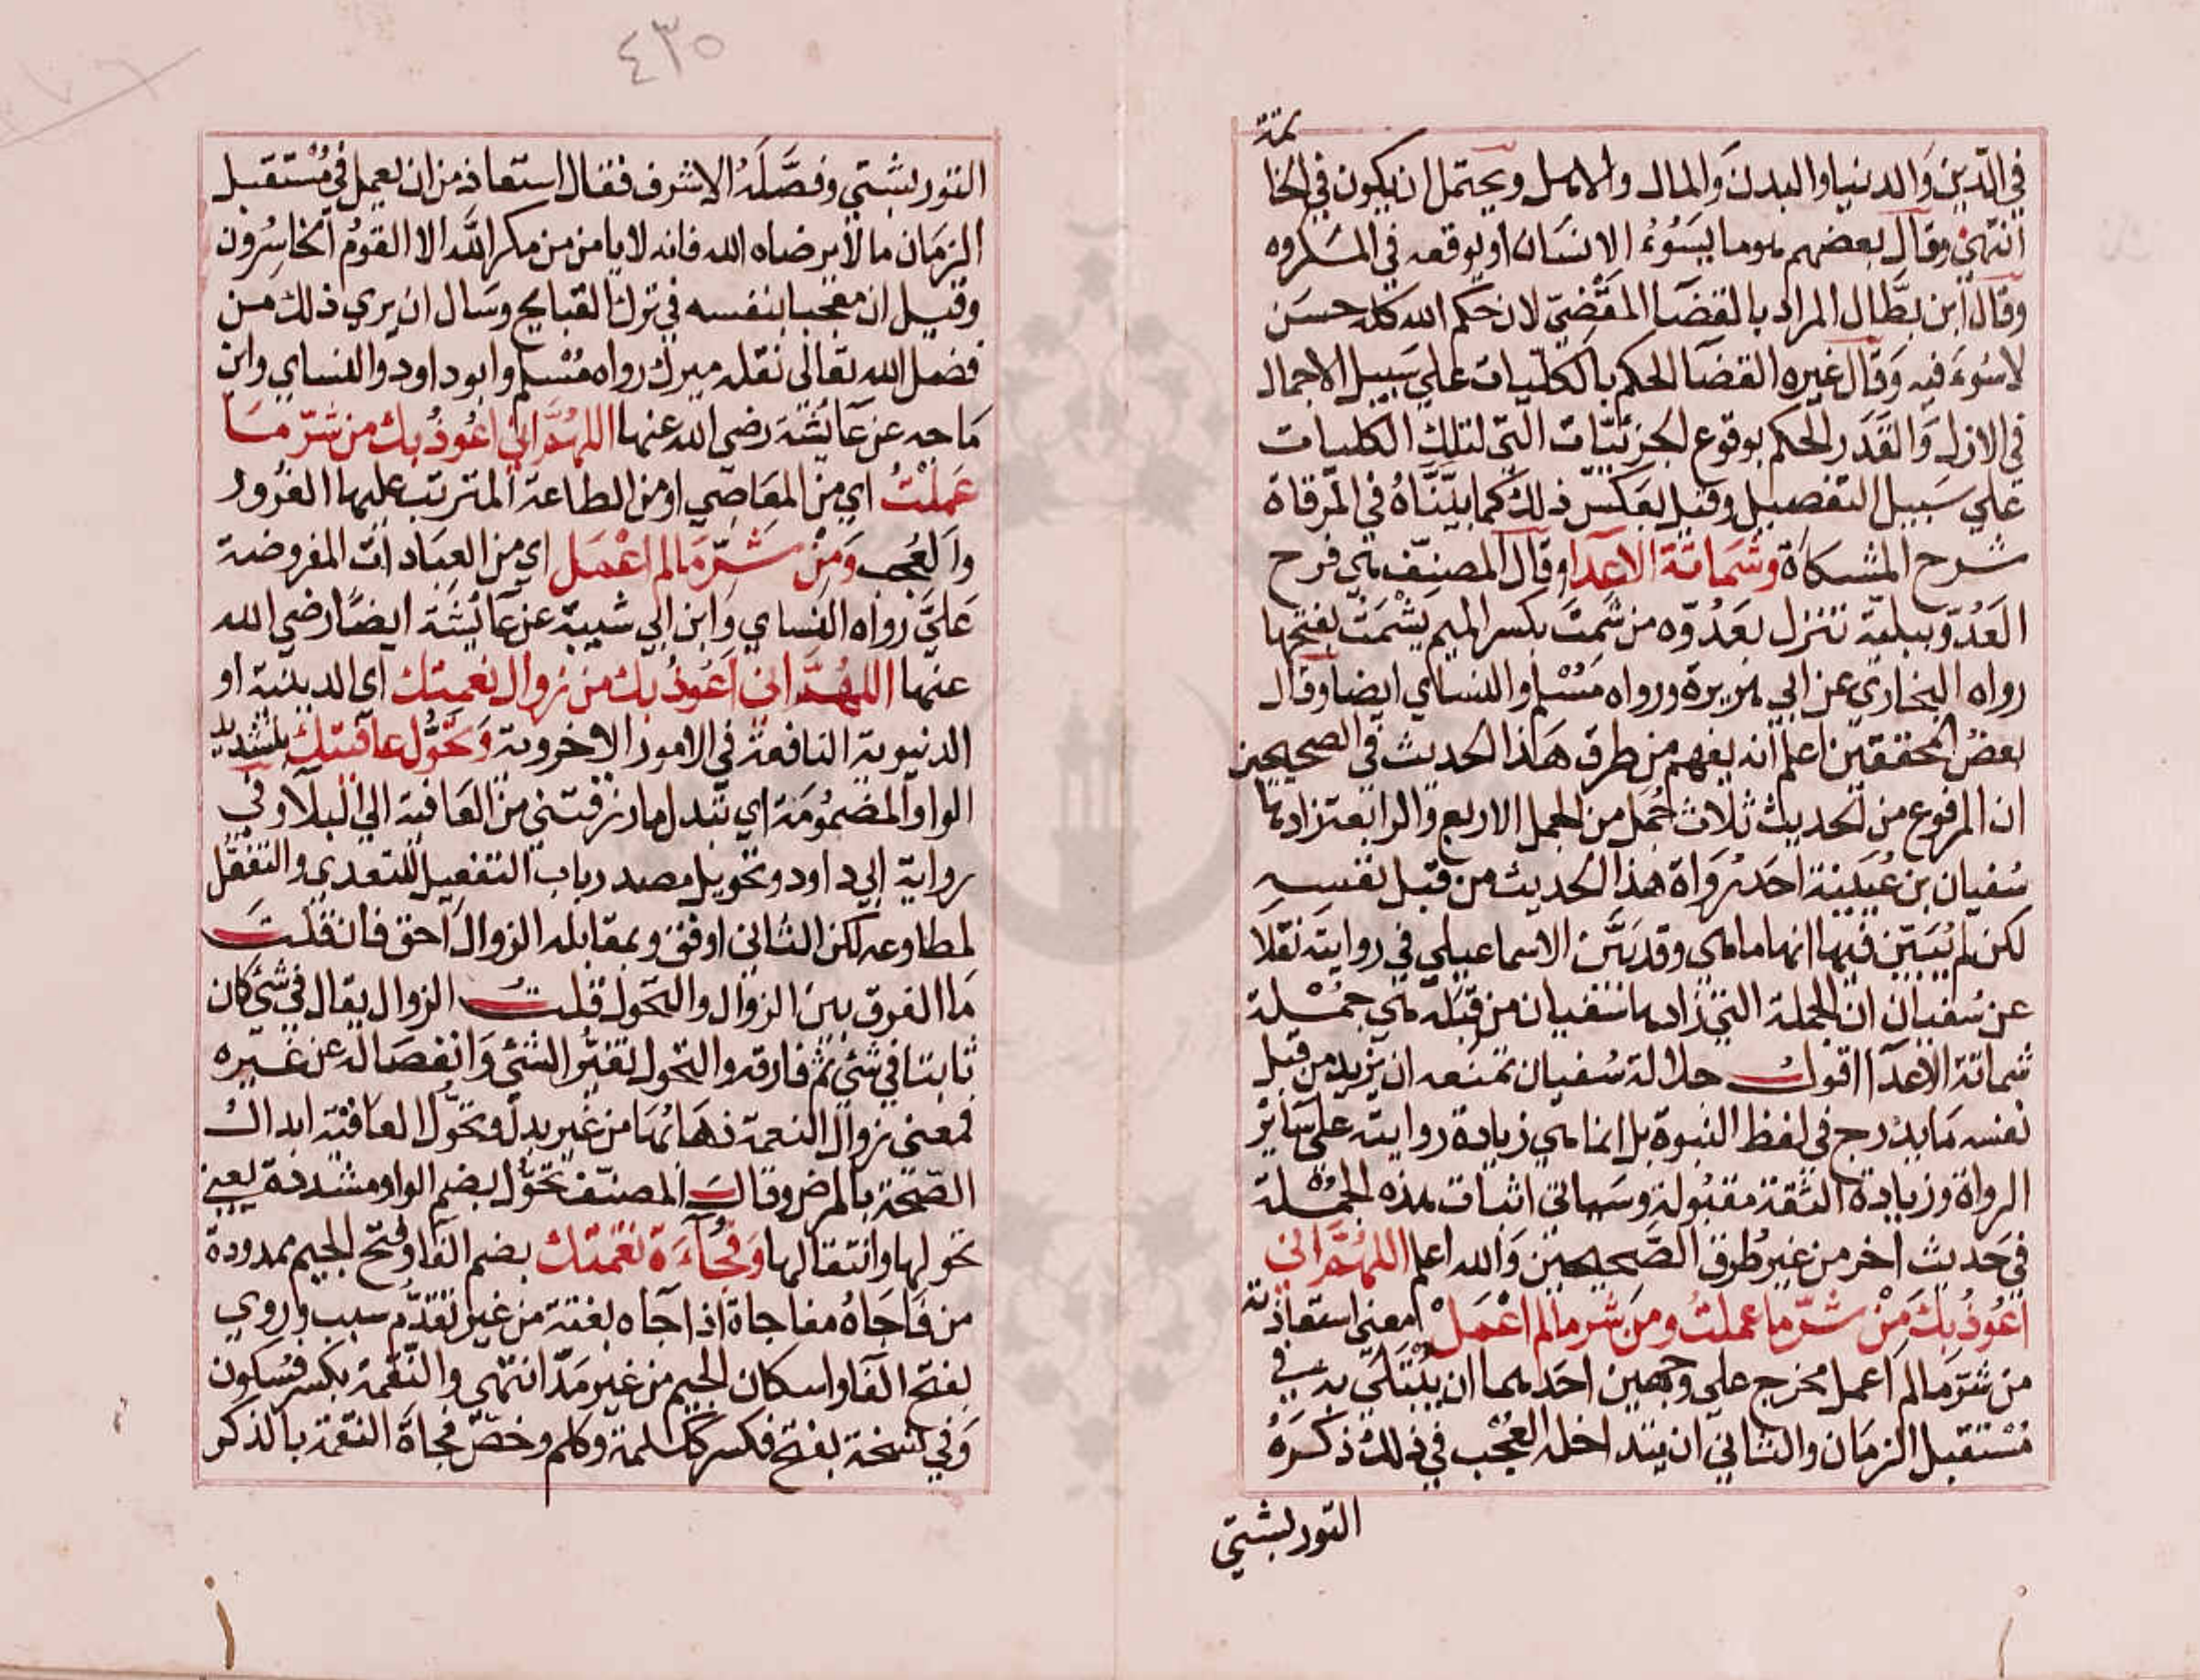 في الدين والدنيا والبدن والمال والاهل ويحتمل ان يكون في الخا
تمة
انتهى وقال بعضهم هو ما يسوء الانسان او يوقعه في المكروه
وقال ابن بطال المراد بالقضا المقضي لان حكم الله كله حسن
لا سوء فيه وقال غيره القضا الحكم بالكليات علي سبيل الاجمال
في الازل والقدر الحكم بوقوع الجزئيات التي لتلك الكليات
علي سبيل التفصيل وقيل بعكس ذلك كما بيناه في المرقاة
شرح المشكاة وشماتة الاعدا وقال المصنف هي فرح
العدو ببلية تنزل بعدوه من شمت بكسر الميم يشمت بفتحها
رواه البخاري عن ابي هريرة ورواه مسلم والنساي ايضا وقال
بعض المحققين اعلم انه يفهم من طرق هذا الحديث في الصحيحين
ان المرفوع من الحديث ثلاث جمل من الجمل الاربع والرابعة زادها
سفيان بن عيينة احد رواة هذا الحديث من قبل نفسه
لكن لم يبين فيها انها ما هي وقد بين الاسماعيلي في روايته نقلا
عن سفيان ان الجملة التي زادها سفيان من قبله هي جملة
شماتة الاعدا اقول جلالة سفيان تمنعه ان يزيد من قبل
نفسه ما يدرج في لفظ النبوة بل انما هي زيادة روايته علي ساير
الرواة وزيادة الثقة مقبولة وسياتي اثبات هذه الجملة
في حديث اخر من غير طرق الصحيحين والله اعلم اللهم اني
اعوذ بك من شر ما عملت ومن شر ما لم اعمل معني استعاذته
من شر ما لم اعمل مخرج علي وجهين احدهما ان يبتلي به في
مستقبل الزمان والثاني ان يتداخله العجب في ذلك ذكره
التوربشتي
٤٣٥
التوربشتي وفصله الاشرف فقال استعاذ من ان يعمل في مستقبل
الزمان ما لا يرضاه الله فانه لا يامن من مكر الله الا القوم الخاسرون
وقيل ان معجبا بنفسه في ترك القبايح وسال ان يري ذلك من
فضل الله تعالي نقله ميرك رواه مسلم وابو داود والنساي وابن
ماجه عن عايشة رضي الله عنها اللهم اني اعوذ بك من شر ما
عملت اي من المعاصي او من الطاعة المترتب عليها الغرور
والعجب ومن شر ما لم اعمل اي من العبادات المفروضة
علي رواه النساي وابن ابي شيبة عن عايشة ايضا رضي الله
عنها اللهم اني اعوذ بك من زوال نعمتك اي الدينية او
الدنيوية النافعة في الامور الاخروية وتحول عافيتك بتشديد
الواو المضمومة اي تبدل ما رزقتني من العافية الي البلا وفي
رواية ابي داود وتحويل مصدر باب التفعيل للتعدي والتفعل
لمطاوعه لكن الثاني اوفق وبمقابله الزوال احق فان قلت
ما الفرق بين الزوال والتحول قلت الزوال يقال في شي كان
ثابتا في شي ثم فارقه والتحول تغير الشي وانفصاله عن غيره
فمعني زوال النعمة ذهابها من غير بدل وتحول العافية ابدال
الصحة بالمرض وقال المصنف تحول بضم الواو مشددة يعني
تحولها وانتقالها وفجاءة نقمتك بضم الفا وفتح الجيم ممدودة
من فاجاه مفاجاة اذا جاه بغتة من غير تقدم سبب وروي
بفتح الفا واسكان الجيم من غير مد انتهى والنقمة بكسر فسكون
وفي نسخة بفتح فكسر ككلمة وكلم وخص فجاة النقمة بالذكر